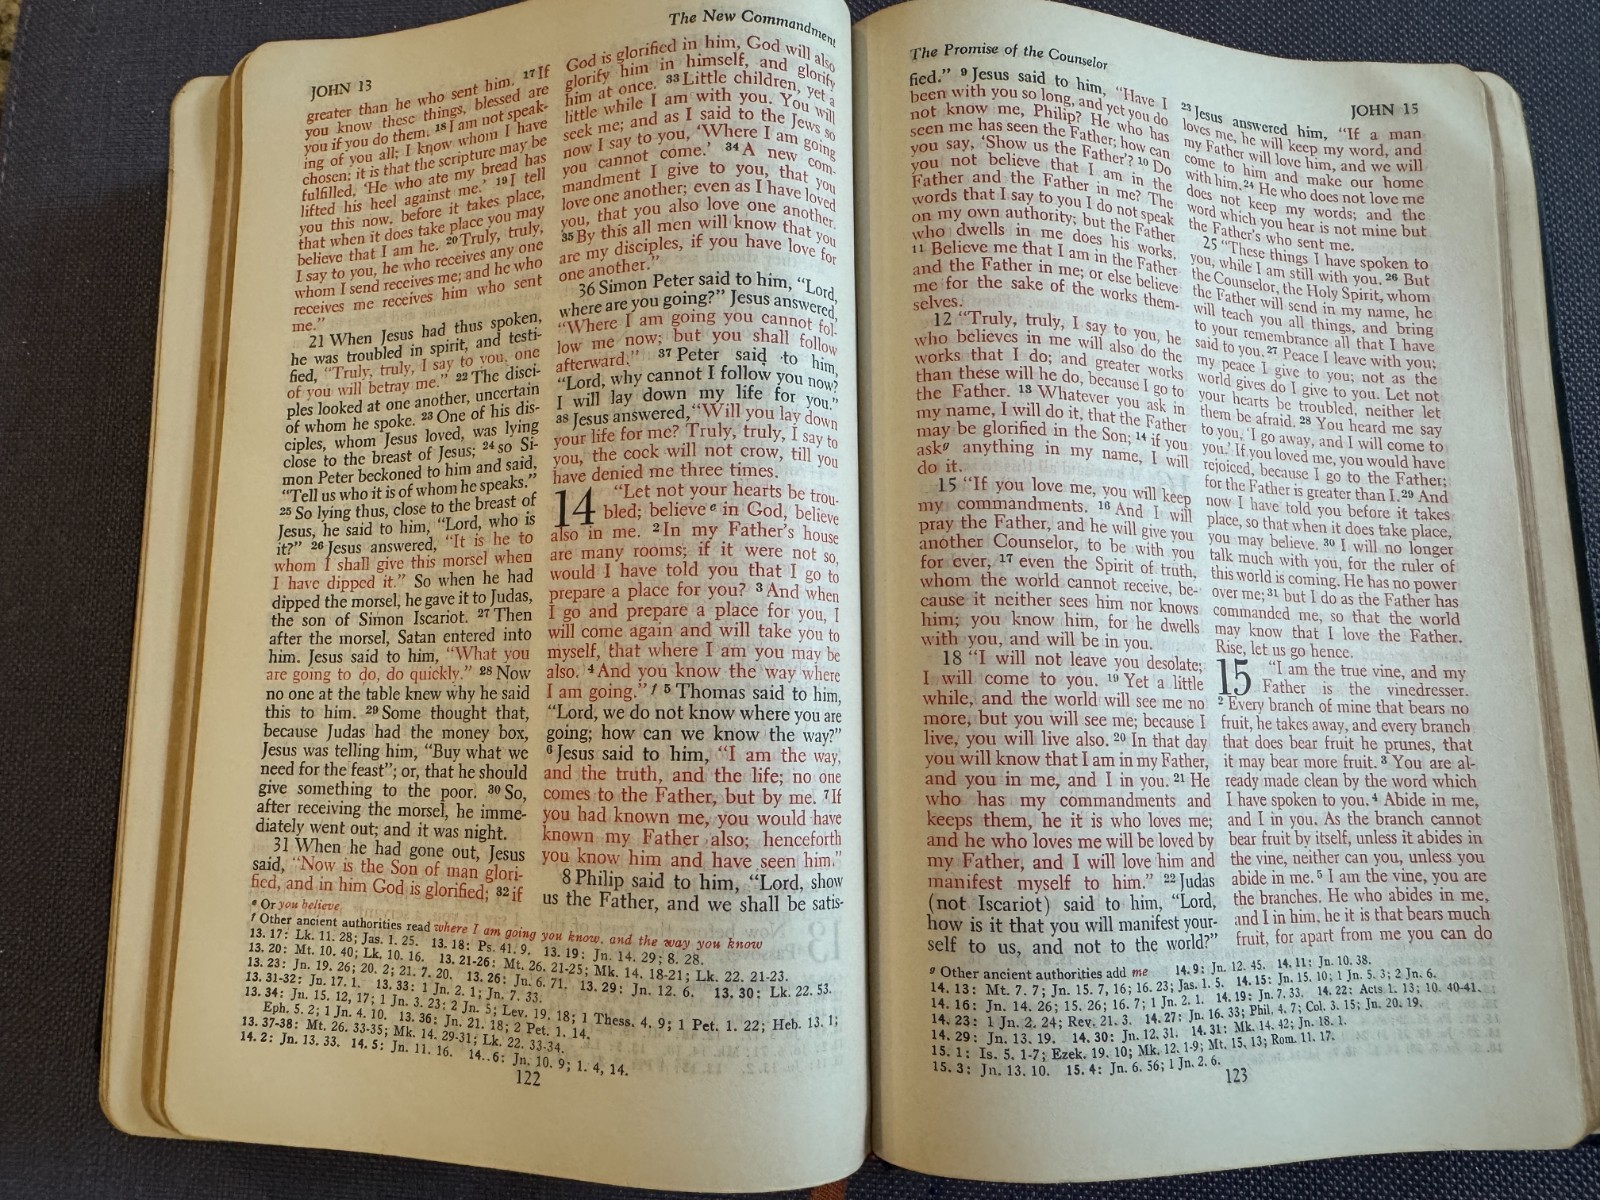 The New Commandment
JOHN 13
greater than he who sent him. 17 If
you know these things, blessed are
you if you do them. 18 I am not speak-
ing of you all; I know whom I have
chosen; it is that the scripture may be
fulfilled, ‘He who ate my bread has
lifted his heel against me.’ 19 I tell
you this now, before it takes place,
that when it does take place you may
believe that I am he. 20 Truly, truly,
I say to you, he who receives any one
whom I send receives me; and he who
receives me receives him who sent
me.”
21 When Jesus had thus spoken,
he was troubled in spirit, and testi-
fied, “Truly, truly, I say to you, one
of you will betray me.” 22 The disci-
ples looked at one another, uncertain
of whom he spoke. 23 One of his dis-
ciples, whom Jesus loved, was lying
close to the breast of Jesus; 24 so Si-
mon Peter beckoned to him and said,
“Tell us who it is of whom he speaks.”
25 So lying thus, close to the breast of
Jesus, he said to him, “Lord, who is
it?” 26 Jesus answered, “It is he to
whom I shall give this morsel when
I have dipped it.” So when he had
dipped the morsel, he gave it to Judas,
the son of Simon Iscariot. 27 Then
after the morsel, Satan entered into
him. Jesus said to him, “What you
are going to do, do quickly.” 28 Now
no one at the table knew why he said
this to him. 29 Some thought that,
because Judas had the money box,
Jesus was telling him, “Buy what we
need for the feast”; or, that he should
give something to the poor. 30 So,
after receiving the morsel, he imme-
diately went out; and it was night.
31 When he had gone out, Jesus
said, “Now is the Son of man glori-
fied, and in him God is glorified; 32 if
God is glorified in him, God will also
glorify him in himself, and glorify
him at once. 33 Little children, yet a
little while I am with you. You will
seek me; and as I said to the Jews so
now I say to you, ‘Where I am going
you cannot come.’ 34 A new com-
mandment I give to you, that you
love one another; even as I have loved
you, that you also love one another.
35 By this all men will know that you
are my disciples, if you have love for
one another.”
36 Simon Peter said to him, “Lord,
where are you going?” Jesus answered,
“Where I am going you cannot fol-
low me now; but you shall follow
afterward.” 37 Peter said to him,
“Lord, why cannot I follow you now?
I will lay down my life for you.”
38 Jesus answered, “Will you lay down
your life for me? Truly, truly, I say to
you, the cock will not crow, till you
have denied me three times.
14 “Let not your hearts be trou-
bled; believe e in God, believe
also in me. 2 In my Father's house
are many rooms; if it were not so,
would I have told you that I go to
prepare a place for you? 3 And when
I go and prepare a place for you, I
will come again and will take you to
myself, that where I am you may be
also. 4 And you know the way where
I am going.” f 5 Thomas said to him,
“Lord, we do not know where you are
going; how can we know the way?”
6 Jesus said to him, “I am the way,
and the truth, and the life; no one
comes to the Father, but by me. 7 If
you had known me, you would have
known my Father also; henceforth
you know him and have seen him.”
8 Philip said to him, “Lord, show
us the Father, and we shall be satis-
e Or you believe
f Other ancient authorities read where I am going you know, and the way you know
13. 17: Lk. 11. 28; Jas. 1. 25. 13. 18: Ps. 41. 9. 13. 19: Jn. 14. 29; 8. 28.
13. 20: Mt. 10. 40; Lk. 10. 16. 13. 21-26: Mt. 26. 21-25; Mk. 14. 18-21; Lk. 22. 21-23.
13. 23: Jn. 19. 26; 20. 2; 21. 7, 20. 13. 26: Jn. 6. 71. 13. 29: Jn. 12. 6. 13. 30: Lk. 22. 53.
13. 31-32: Jn. 17. 1. 13. 33: 1 Jn. 2. 1; Jn. 7. 33.
13. 34: Jn. 15. 12, 17; 1 Jn. 3. 23; 2 Jn. 5; Lev. 19. 18; 1 Thess. 4. 9; 1 Pet. 1. 22; Heb. 13. 1;
Eph. 5. 2; 1 Jn. 4. 10. 13. 36: Jn. 21. 18; 2 Pet. 1. 14.
13. 37-38: Mt. 26. 33-35; Mk. 14. 29-31; Lk. 22. 33-34.
14. 2: Jn. 13. 33. 14. 5: Jn. 11. 16. 14. 6: Jn. 10. 9; 1. 4, 14.
122
The Promise of the Counselor
JOHN 15
fied.” 9 Jesus said to him, “Have I
been with you so long, and yet you do
not know me, Philip? He who has
seen me has seen the Father; how can
you say, ‘Show us the Father’? 10 Do
you not believe that I am in the
Father and the Father in me? The
words that I say to you I do not speak
on my own authority; but the Father
who dwells in me does his works.
11 Believe me that I am in the Father
and the Father in me; or else believe
me for the sake of the works them-
selves.
12 “Truly, truly, I say to you, he
who believes in me will also do the
works that I do; and greater works
than these will he do, because I go to
the Father. 13 Whatever you ask in
my name, I will do it, that the Father
may be glorified in the Son; 14 if you
ask g anything in my name, I will
do it.
15 “If you love me, you will keep
my commandments. 16 And I will
pray the Father, and he will give you
another Counselor, to be with you
for ever, 17 even the Spirit of truth,
whom the world cannot receive, be-
cause it neither sees him nor knows
him; you know him, for he dwells
with you, and will be in you.
18 “I will not leave you desolate;
I will come to you. 19 Yet a little
while, and the world will see me no
more, but you will see me; because I
live, you will live also. 20 In that day
you will know that I am in my Father,
and you in me, and I in you. 21 He
who has my commandments and
keeps them, he it is who loves me;
and he who loves me will be loved by
my Father, and I will love him and
manifest myself to him.” 22 Judas
(not Iscariot) said to him, “Lord,
how is it that you will manifest your-
self to us, and not to the world?”
23 Jesus answered him, “If a man
loves me, he will keep my word, and
my Father will love him, and we will
come to him and make our home
with him. 24 He who does not love me
does not keep my words; and the
word which you hear is not mine but
the Father's who sent me.
25 “These things I have spoken to
you, while I am still with you. 26 But
the Counselor, the Holy Spirit, whom
the Father will send in my name, he
will teach you all things, and bring
to your remembrance all that I have
said to you. 27 Peace I leave with you;
my peace I give to you; not as the
world gives do I give to you. Let not
your hearts be troubled, neither let
them be afraid. 28 You heard me say
to you, ‘I go away, and I will come to
you.’ If you loved me, you would have
rejoiced, because I go to the Father;
for the Father is greater than I. 29 And
now I have told you before it takes
place, so that when it does take place,
you may believe. 30 I will no longer
talk much with you, for the ruler of
this world is coming. He has no power
over me; 31 but I do as the Father has
commanded me, so that the world
may know that I love the Father.
Rise, let us go hence.
15 “I am the true vine, and my
Father is the vinedresser.
2 Every branch of mine that bears no
fruit, he takes away, and every branch
that does bear fruit he prunes, that
it may bear more fruit. 3 You are al-
ready made clean by the word which
I have spoken to you. 4 Abide in me,
and I in you. As the branch cannot
bear fruit by itself, unless it abides in
the vine, neither can you, unless you
abide in me. 5 I am the vine, you are
the branches. He who abides in me,
and I in him, he it is that bears much
fruit, for apart from me you can do
g Other ancient authorities add me 14. 9: Jn. 12. 45. 14. 11: Jn. 10. 38.
14. 13: Mt. 7. 7; Jn. 15. 7, 16; 16. 23; Jas. 1. 5. 14. 15: Jn. 15. 10; 1 Jn. 5. 3; 2 Jn. 6.
14. 16: Jn. 14. 26; 15. 26; 16. 7; 1 Jn. 2. 1. 14. 19: Jn. 7. 33. 14. 22: Acts 1. 13; 10. 40-41.
14. 23: 1 Jn. 2. 24; Rev. 21. 3. 14. 27: Jn. 16. 33; Phil. 4. 7; Col. 3. 15; Jn. 20. 19.
14. 29: Jn. 13. 19. 14. 30: Jn. 12. 31. 14. 31: Mk. 14. 42; Jn. 18. 1.
15. 1: Is. 5. 1-7; Ezek. 19. 10; Mk. 12. 1-9; Mt. 15. 13; Rom. 11. 17.
15. 3: Jn. 13. 10. 15. 4: Jn. 6. 56; 1 Jn. 2. 6.
123